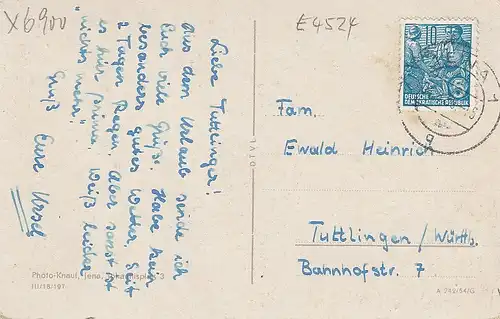 X6900
E4524
Liebe Tuttlinger!
Aus dem Urlaub sende ich
Euch viele Grüße. Habe kein
besonders gutes Wetter, seit
2 Tagen Regen. Aber sonst ist
es hier prima. Weiß leider
"nichts mehr".
Gruß
Eure Ursel
Photo-Knauf, Jena, Johannisplatz 3
III/18/197
DEUTSCHE
DEMOKRATISCHE REPUBLIK
Fam.
Ewald Heinrich
Tuttlingen/Württb.
Bahnhofstr. 7
A 242/54/G